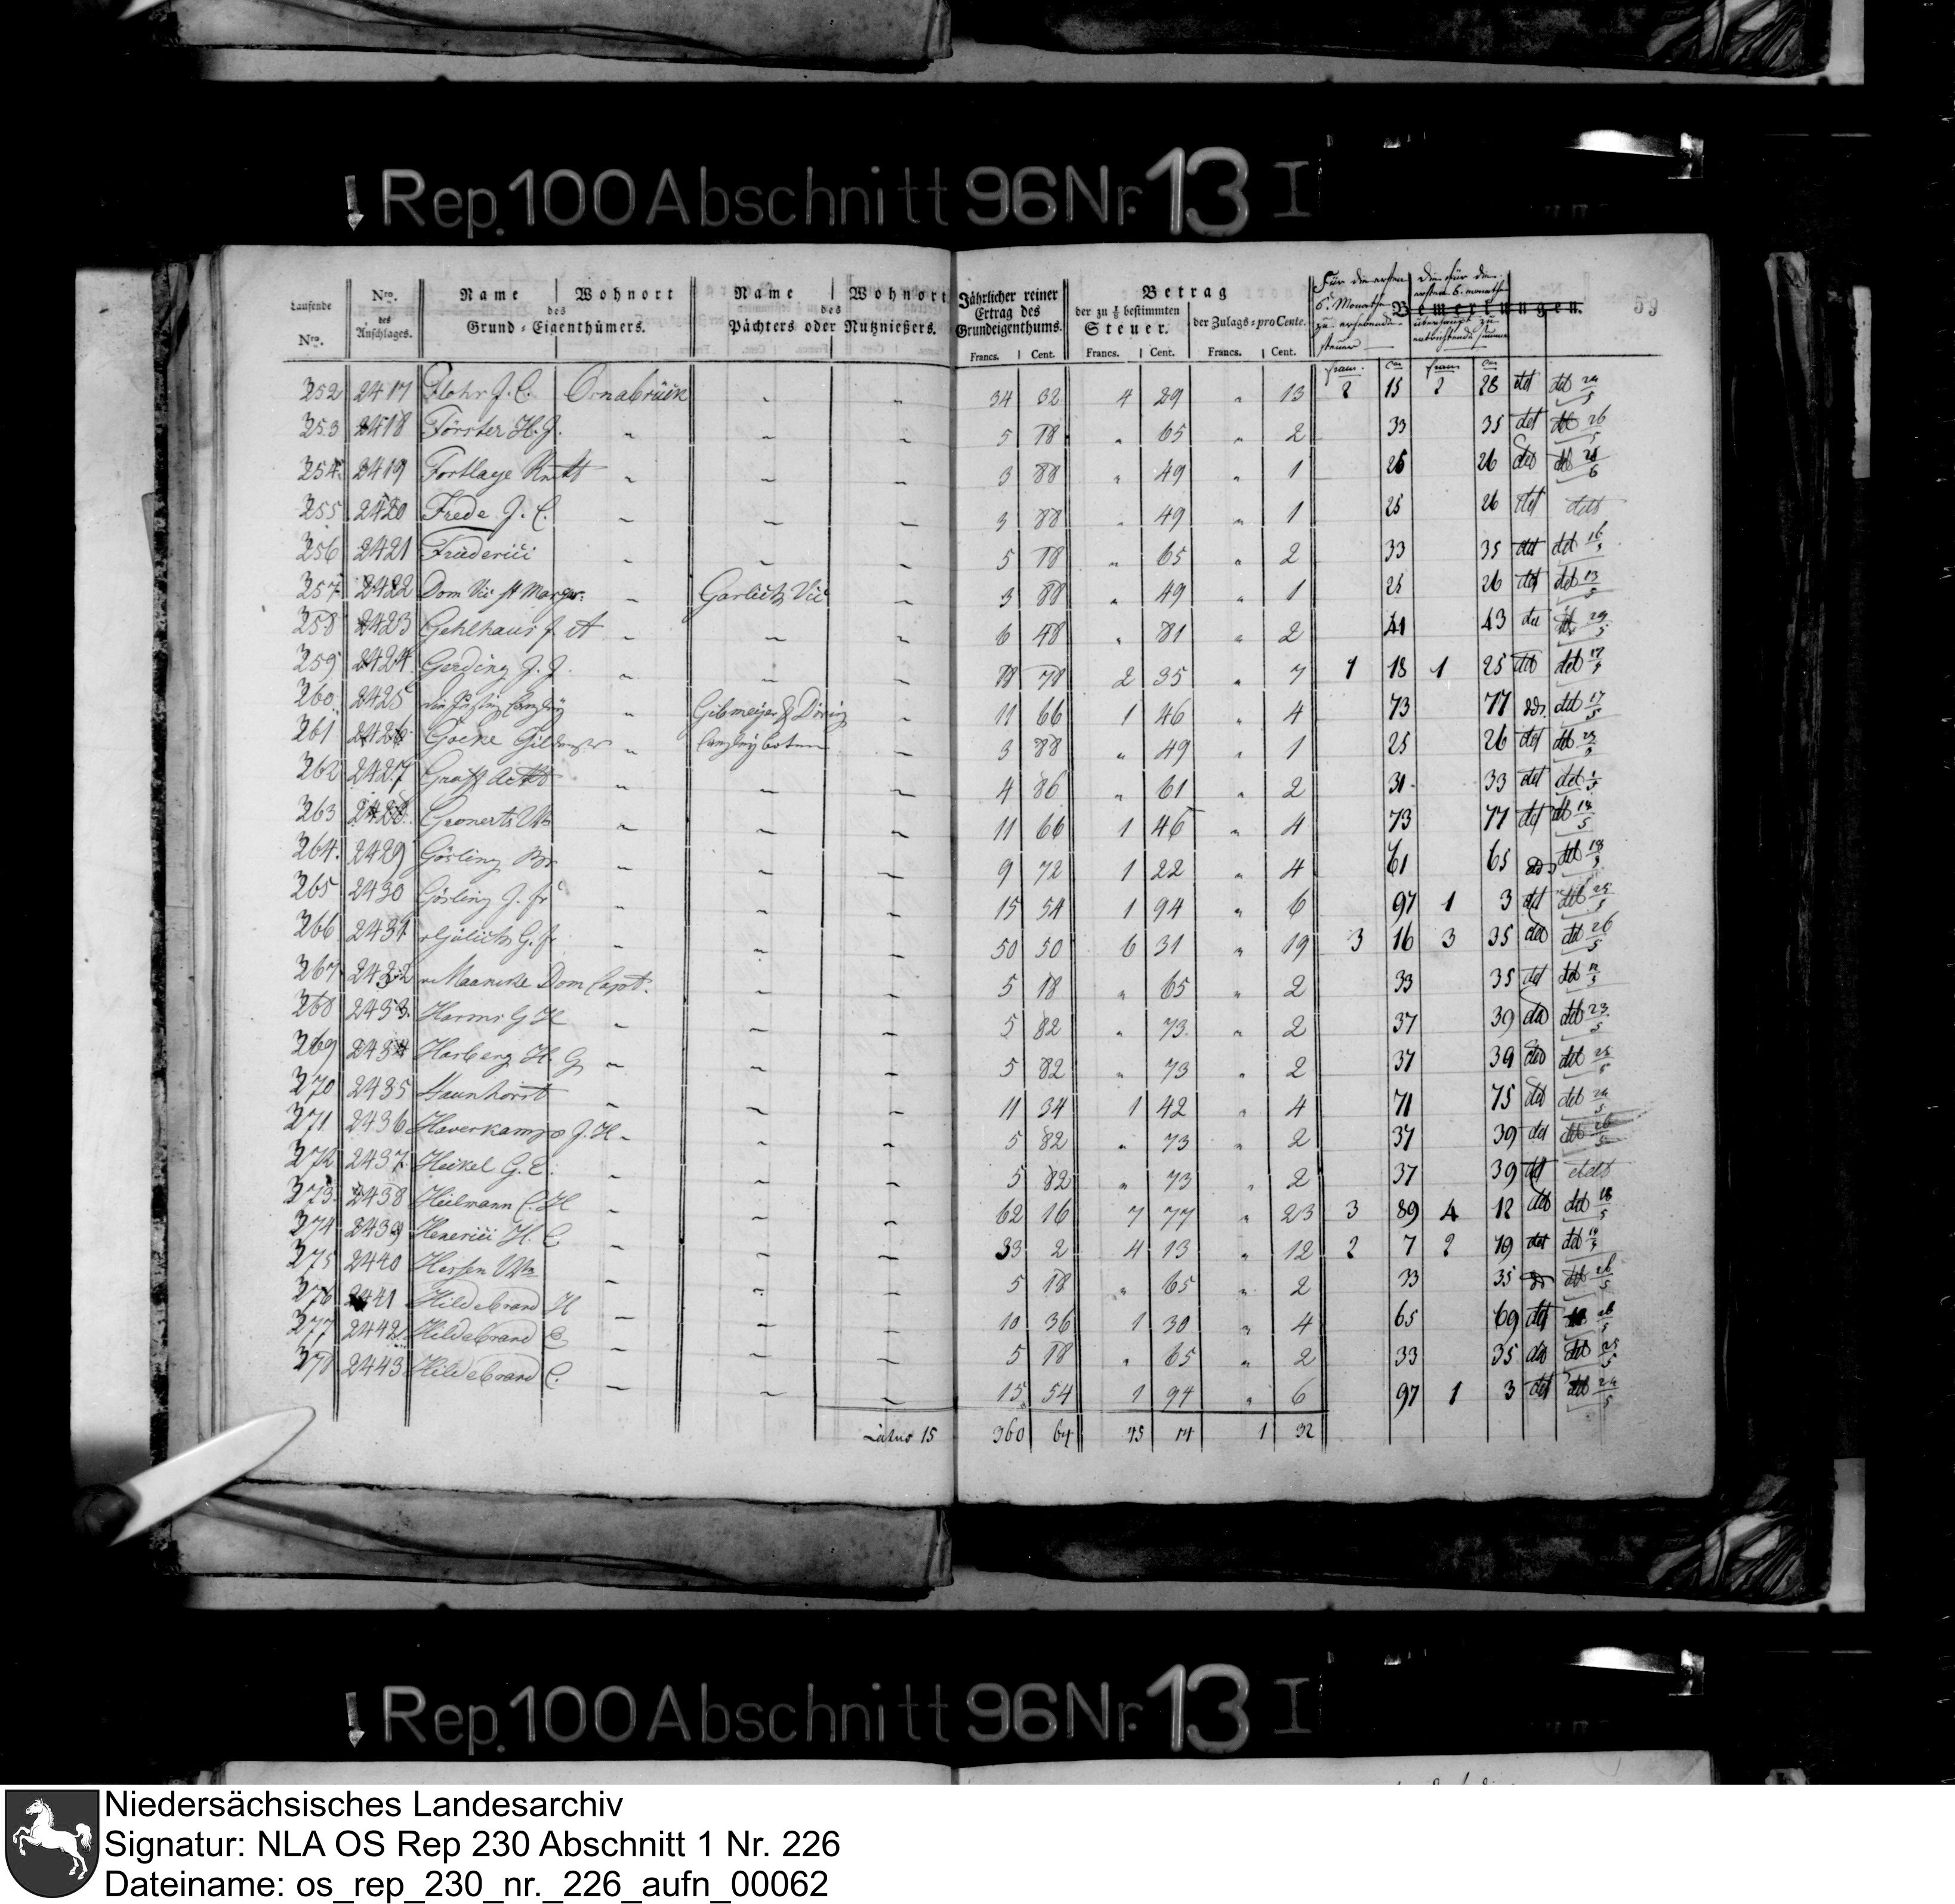 Rep. 100 Abschnitt 96 Nr. 13 I
Laufende Nro. | Nro. des Anschlages. | Name | Wohnort des Grund-Eigenthümers. | Name | Wohnort des Pächters oder Nutznießers. | Jährlicher reiner Ertrag des Grundeigenthums. | Betrag der zu 1/8 bestimmten Steuer. | der Zulags-pro Cente. | Für die ersten 6. Monathe zu erhebende Steuer | Die für die ersten 6. monathe überhaupt zu entrichtende Summe | Bemerkungen. 59
Francs. | Cent. | Francs. | Cent. | Francs. | Cent. | franc. | Cen | franc | Cen
252 2417 Flohr J. C. Osnabrück " " 34 32 4 29 " 13 2 15 2 28 det det 24/5
253 2418 Förster H. J. " " " 5 18 " 65 " 2 33 35 det det 26/5
254 2419 Fortlage " " " 3 88 " 49 " 1 25 26 det
255 2420 Frede J. C. " " " 3 88 " 49 " 1 25 26 det
256 2421 Friederici " " " 5 18 " 65 " 2 33 35 det det 16/5
257 2422 Dom Vic st Margar: " Garlich Vic " 3 88 " 49 " 1 25 26 det det 13/5
258 2423 Gehlhaus J. A " " " 6 48 " 81 " 2 41 43 det det 29/5
259 2424 Gerding J. J. " " " 18 78 2 35 " 7 1 18 1 25 det det
260 2425 " Gibmeyer & Döring " 11 66 1 46 " 4 73 77 det 17/5
261 2426 Goeke " " 3 88 " 49 " 1 25 26 det det 23/5
262 2427 Graff " " " 4 86 " 61 " 2 31 33 det det
263 2428 Gronerts Wb " " " 11 66 1 46 " 4 73 77 det det
264 2429 Gösling " " " 9 72 1 22 " 4 61 65 det
265 2430 Gösling J. fr " " " 15 54 1 94 " 6 97 1 3 det det 25/5
266 2431 Gülich G. fr " " " 50 50 6 31 " 19 3 16 3 35 det det 26/5
267 2432 Dom Capit. " " 5 18 " 65 " 2 33 35 det det
268 2433 Harms G H " " " 5 82 " 73 " 2 37 39 det det 23/5
269 2434 Harberg H. G " " " 5 82 " 73 " 2 37 39 det det 25/5
270 2435 Haunhorst " " " 11 34 1 42 " 4 71 75 det det 24/5
271 2436 Haverkamp J. H " " " 5 82 " 73 " 2 37 39 det det 26/5
272 2437 Heikel G. E. " " " 5 82 " 73 " 2 37 39 det
273 2438 Heilmann C. H " " " 62 16 7 77 " 23 3 89 4 12 det det 18/5
274 2439 Henrici H. C. " " " 33 2 4 13 " 12 2 7 2 19 det det
275 2440 Hersen Wb " " " 5 18 " 65 " 2 33 35 det 26/5
276 2441 Hildebrand H " " " 10 36 1 30 " 4 65 69 det
277 2442 Hildebrand " " " 5 18 " 65 " 2 33 35 det det 25/5
278 2443 Hildebrand C. " " " 15 54 1 94 " 6 97 1 3 det det 24/5
Latus 15 360 64 45 14 1 32
Rep. 100 Abschnitt 96 Nr. 13 I
Niedersächsisches Landesarchiv
Signatur: NLA OS Rep 230 Abschnitt 1 Nr. 226
Dateiname: os_rep_230_nr._226_aufn_00062